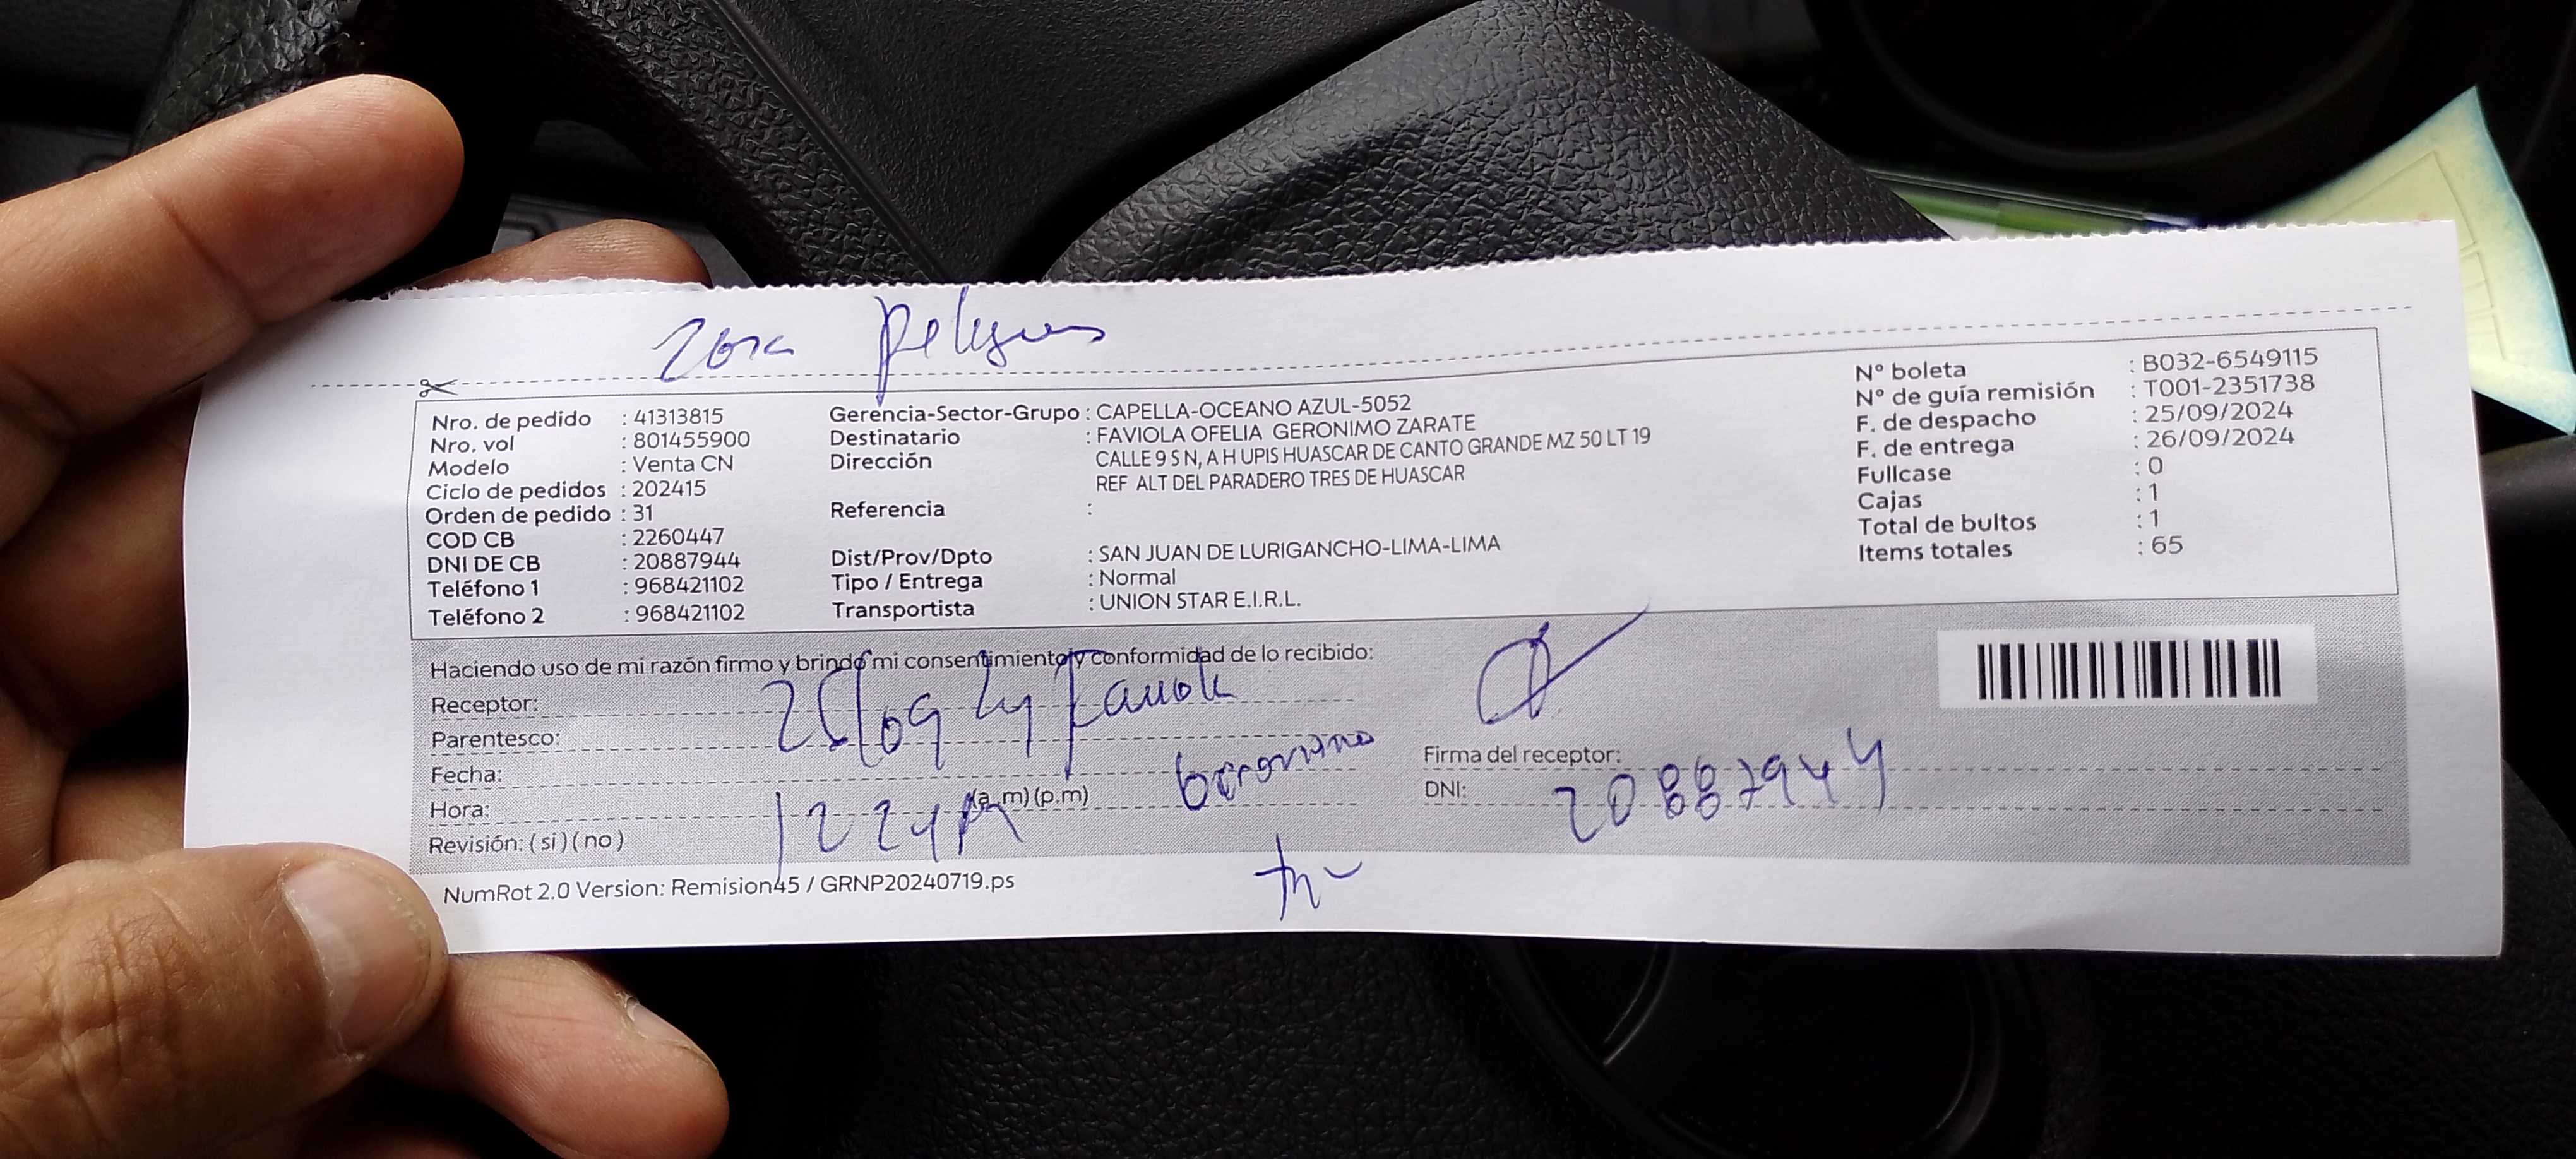 Zona peligrosa
Nro. de pedido : 41313815
Nro. vol : 801455900
Modelo : Venta CN
Ciclo de pedidos : 202415
Orden de pedido : 31
COD CB : 2260447
DNI DE CB : 20887944
Teléfono 1 : 968421102
Teléfono 2 : 968421102
Gerencia-Sector-Grupo : CAPELLA-OCEANO AZUL-5052
Destinatario : FAVIOLA OFELIA GERONIMO ZARATE
Dirección CALLE 9 S N, A H UPIS HUASCAR DE CANTO GRANDE MZ 50 LT 19
REF ALT DEL PARADERO TRES DE HUASCAR
Referencia :
Dist/Prov/Dpto : SAN JUAN DE LURIGANCHO-LIMA-LIMA
Tipo / Entrega : Normal
Transportista : UNION STAR E.I.R.L.
N° boleta : B032-6549115
N° de guía remisión : T001-2351738
F. de despacho : 25/09/2024
F. de entrega : 26/09/2024
Fullcase : 0
Cajas : 1
Total de bultos : 1
Items totales : 65
Haciendo uso de mi razón firmo y brindo mi consentimiento y conformidad de lo recibido:
Receptor:
Parentesco:
Fecha:
Hora: (a.m) (p.m)
Revisión: ( si ) ( no )
Firma del receptor:
DNI: 20887944
NumRot 2.0 Version: Remision45 / GRNP20240719.ps